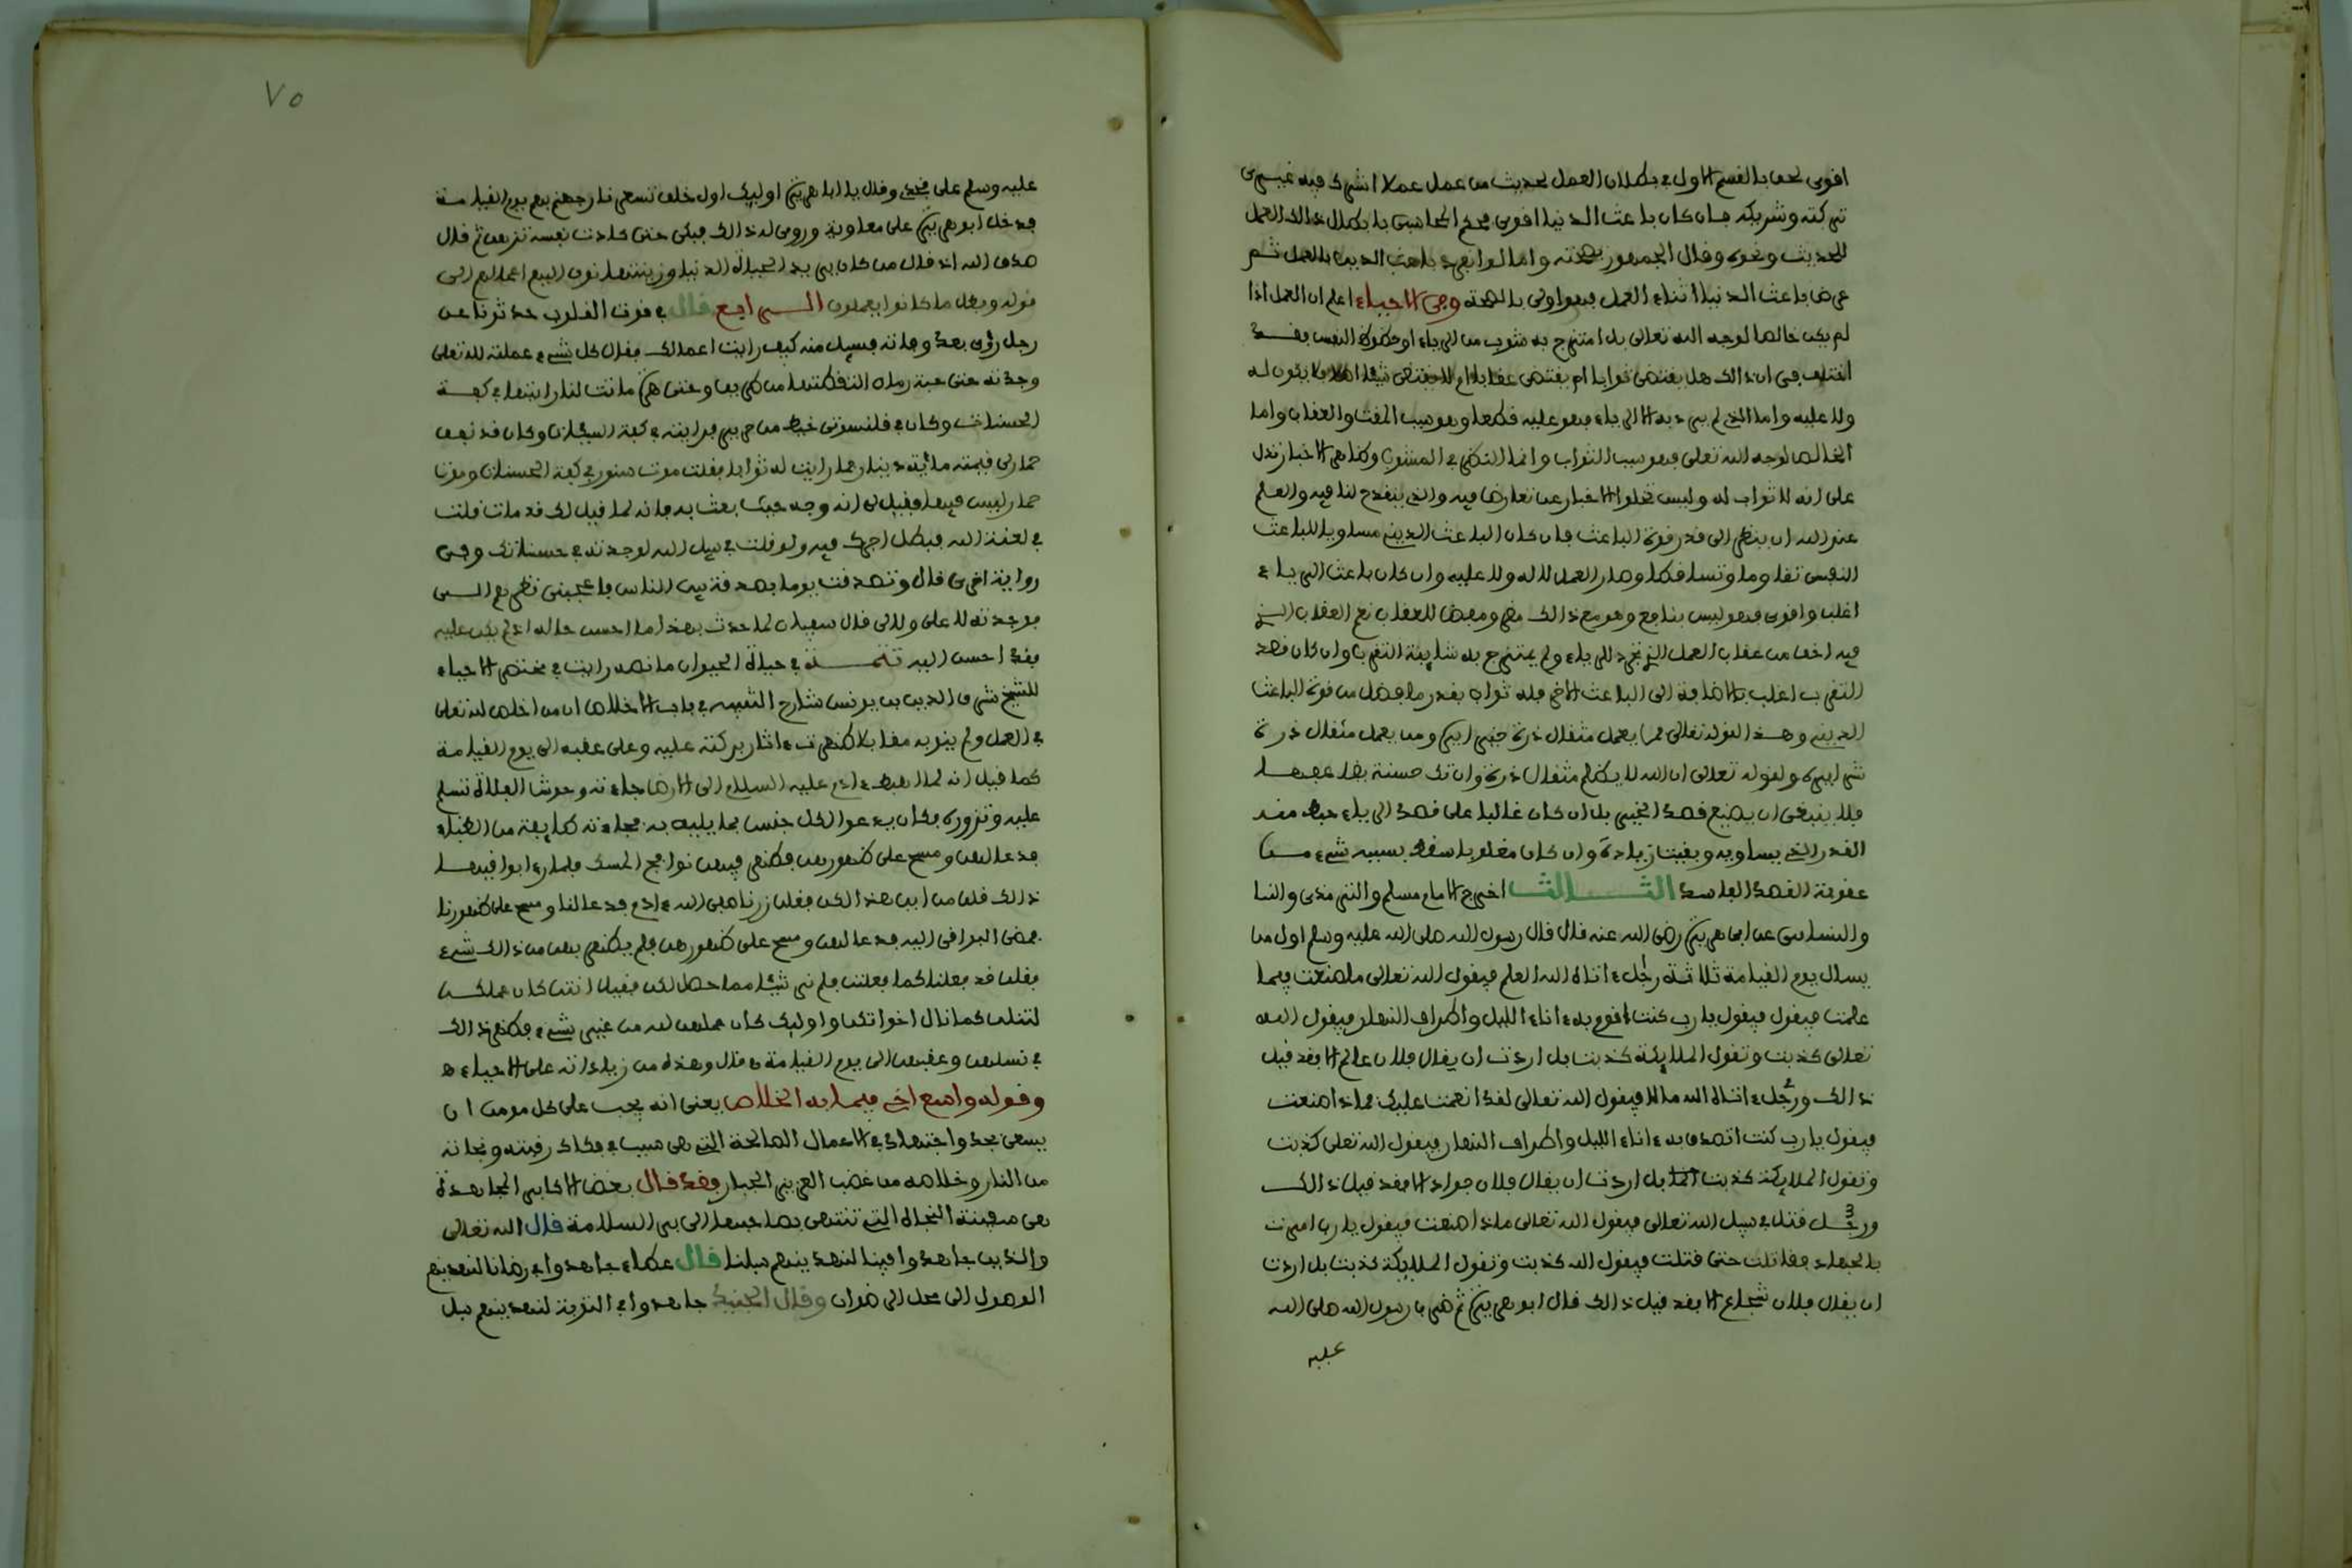 اقوى لحق بالقسم الاول في بطلان العمل لحديث من عمل عملا اشرك فيه غيري
تركته وشريكه فان كان باعث الدنيا اقوى فحكم المحاسبي بابطال ذالك العمل
للحديث ونحوه وقال الجمهور بصحته واما لو انفرد باعث الدين بالعمل ثم
عرض باعث الدنيا اثناء العمل فهو اولى بالصحة وفي الاحياء اعلم ان العمل اذا
لم يكن خالصا لوجه الله تعالى بل امتزج به شوب من الرياء او حظوظ النفس فقد
اختلف في ان ذالك هل يقتضي ثوابا ام يقتضي عقابا ام لا يقتضي شيئا اصلا فلا يكون له
ولا عليه واما الذي لم يرد به الا الرياء فهو عليه قطعا وهو سبب المقت والعقاب واما
الخالص لوجه الله تعالى فهو سبب الثواب وانما النظر في المشوب وظاهر الاخبار تدل
على انه لا ثواب له وليس تخلوا الاخبار عن تعارض فيه والذي ينقدح لنا فيه والعلم
عند الله ان ينظر الى قدر قوة الباعث فان كان الباعث الديني مساويا للباعث
النفسي تقاوما وتساقطا وصار العمل لا له ولا عليه وان كان باعث الرياء
اغلب واقوى فهو ليس بنافع وهو مع ذالك مضر ومفض للعقاب نعم العقاب الذي
فيه اخف من عقاب العمل الذي تجرد للرياء ولم يمتزج به شايبة التقرب وان كان قصد
التقرب اغلب بالاضافة الى الباعث الاخر فله ثواب بقدر ما فضل من قوة الباعث
الديني وهذا لقوله تعالى فمن يعمل مثقال ذرة خيرا يره ومن يعمل مثقال ذرة
شرا يره ولقوله تعالى ان الله لا يظلم مثقال ذرة وان تك حسنة يضاعفها
فلا ينبغي ان يضيع قصد الخير بل ان كان غالبا على قصد الرياء حبط منه
القدر الذي يساويه وبقيت زيادة وان كان مغلوبا سقط بسببه شيء من
عقوبة القصد الفاسد الثالث اخرج الامام مسلم والترمذي والنسا
والنساءي عن ابي هريرة رضي الله عنه قال قال رسول الله صلى الله عليه وسلم اول من
يسال يوم القيامة ثلاثة رجل ءاتاه الله العلم فيقول الله تعالى ما صنعت فيما
علمت فيقول فيقول يا رب كنت اقوم به ءاناء الليل واطراف النهار فيقول الله
تعالى كذبت وتقول الملايكة كذبت بل اردت ان يقال فلان عالم الا فقد قيل
ذالك ورجل ءاتاه الله مالا فيقول الله تعالى لقد انعمت عليك فماذا صنعت
فيقول يا رب كنت اتصدق به ءاناء الليل واطراف النهار فيقول الله تعلى كذبت
وتقول الملايكة كذبت بل اردت ان يقال فلان جواد الا فقد قيل ذالك
ورجل قتل في سبيل الله تعالى فيقول الله تعالى ماذا صنعت فيقول يا رب امرت
بالجهاد فقاتلت حتى قتلت فيقول الله كذبت وتقول الملايكة كذبت بل اردت
ان يقال فلان شجاع الا فقد قيل ذالك قال ابو هريرة ثم ضرب رسول الله صلى الله
عليه
٧٥
عليه وسلم على فخذي وقال يا ابا هريرة اوليك اول خلق تسعر نار جهنم بهم يوم القيامة
فدخل ابو هريرة على معاوية وروى له ذالك فبكى حتى كادت نفسه تزهق ثم قال
صدق الله اذ قال من كان يريد الحياة الدنيا وزينتها نوف اليهم اعمالهم الى
قوله وبطل ما كانوا يعملون الرابع قال في قوت القلوب حدثونا عن
رجل رؤى بعد وفاته فسيل منه كيف رايت اعمالك فقال كل شيء عملته لله تعلى
وجدته حتى حبة رمان التقطتها من طريق وحتى هرة ماتت لنا رايتها في كفة
الحسنات وكان في قلنسوتي خيط من حرير فرايته في كفة السيئات وكان قد نفق
حمار لي قيمته مائة دينار فما رايت له ثوابا فقلت موت سنور في كفة الحسنات وموت
حمار ليس فيها فقيل لي انه وجه حيث بعث به فانه لما قيل لك قد مات قلت
في لعنة الله فبطل اجرك فيه ولو قلت في سبيل الله لوجدته في حسناتك وفي
رواية اخرى قال وتصدقت يوما بصدقة بين الناس فاعجبني نظرهم الي
فوجدته لا علي ولا لي قال سفيان لما حدث بهذا ما احسن حاله اذ لم يكن عليه
فقد احسن اليه تتمة في حياة الحيوان ما نصه رايت في مختصر الاحياء
للشيخ شرف الدين بن يونس شارح التنبيه في باب الاخلاص ان من اخلص لله تعلى
في العمل ولم ينو به مقابلا ظهرت ءاثار بركته عليه وعلى عقبه الى يوم القيامة
كما قيل انه لما اهبط ءادم عليه السلام الى الارض جاءته وحوش الفلاة تسلم
عليه وتزوره فكان يدعوا لكل جنس بما يليق به فجاءته طايفة من الظباء
فدعا لهن ومسح على ظهورهن فظهر فيهن نوافج المسك فلما راءوا فيها
ذالك قلن من اين هذا لكن فقلن زرنا صفي الله ءادم فدعا لنا ومسح على ظهورنا
فمضى البواقي اليه فدعا لهن ومسح على ظهورهن فلم يظهر بهن من ذالك شيء
فقلن قد فعلنا كما فعلتن فلم نر شيئا مما حصل لكن فقيل انتن كان عملكن
لتنلن كما نال اخواتكن واوليك كان عملهن لله من غير شيء فظهر ذالك
في نسلهن وعقبهن الى يوم القيامة قال وهذه من زياداته على الاحياء ه
وقوله واسع اخي فيما به الخلاص يعني انه يجب على كل مومن ان
يسعى بجد واجتهاد في الاعمال الصالحة التي هي سبب في فكاك رقبته ونجاته
من النار وخلاصه من غضب العزيز الجبار فقد قال بعض الاكابر المجاهدة
هي سفينة النجاة التي تنتهي بصاحبها الى بر السلامة قال الله تعالى
والذين جاهدوا فينا لنهدينهم سبلنا قال عطاء جاهدوا في رضانا لنهدينهم
الوصول الى محل الرضوان وقال الجنيد جاهدوا في التوبة لنهدينهم سبل